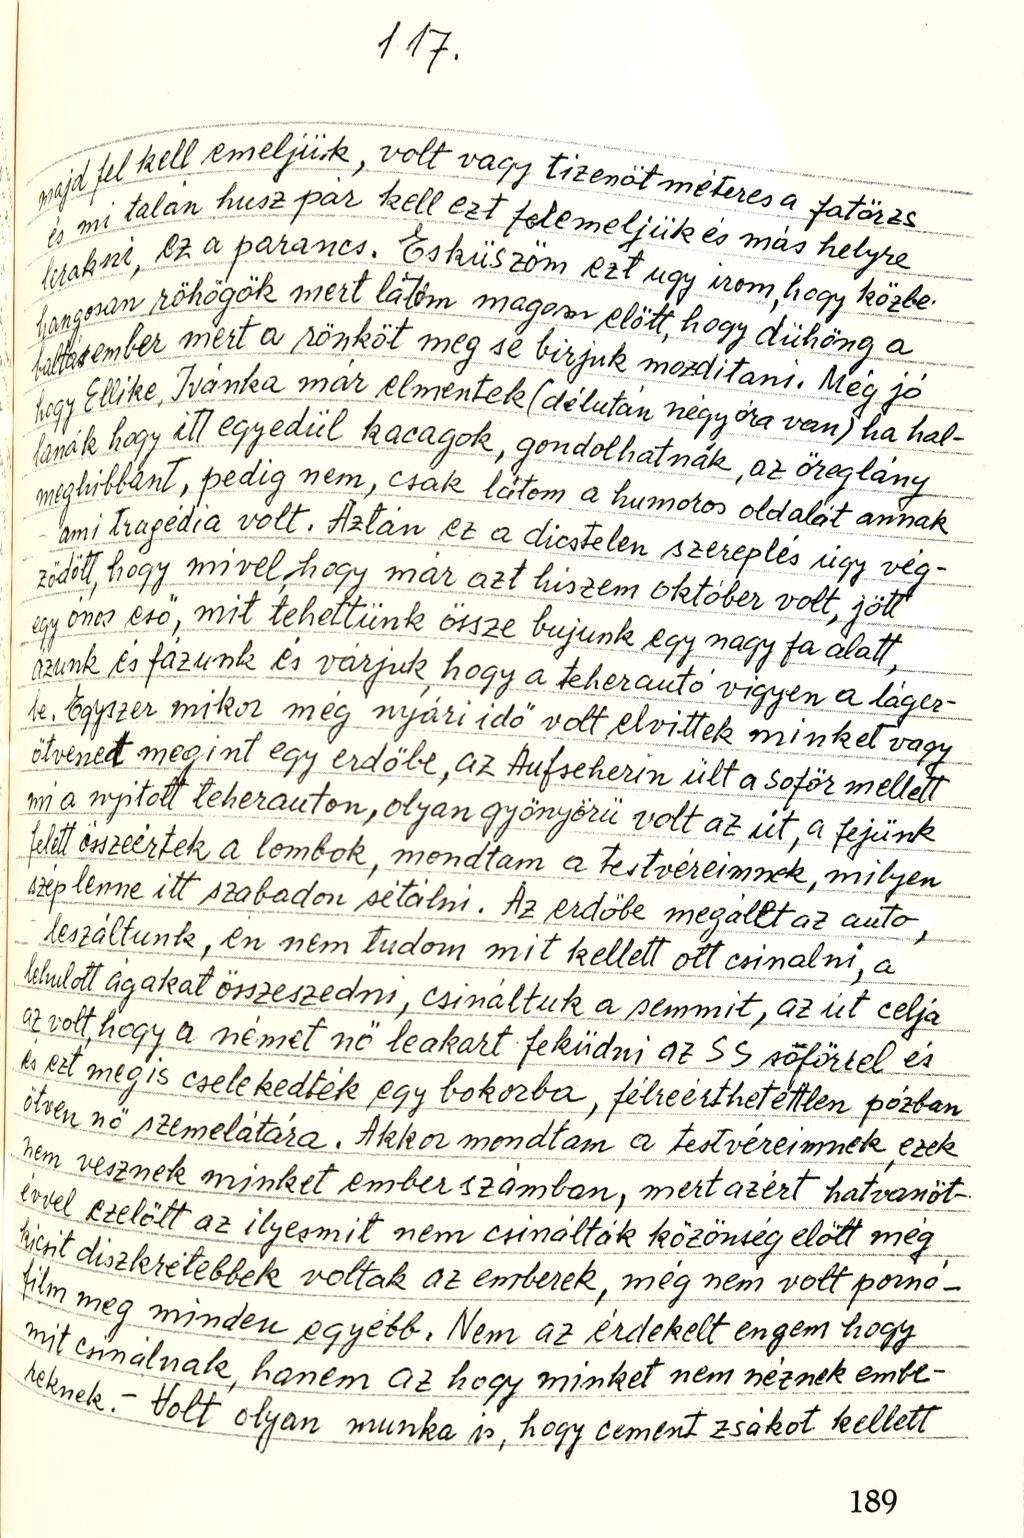 117.
majd fel kell emeljük, volt vagy tizenöt méteres a fatörzs
és mi talán husz pár kell ezt felemeljük és más helyre
lerakni, ez a parancs. Esküszöm ezt ugy irom, hogy közbe
hangosan röhögök mert látom magam előtt, hogy dühöng a
baltásember mert a rönköt meg se birjuk mozditani. Még jó
hogy Ellike, Ivánka már elmentek (délután négy óra van) ha hal-
lanák hogy itt egyedül kacagok, gondolhatnák, az öreglány
meghibbant, pedig nem, csak látom a humoros oldalát annak
ami tragédia volt. Aztán ez a dicstelen szereplés úgy vég-
ződött, hogy mivel, hogy már azt hiszem október volt, jött
egy ónos eső, mit tehettünk össze bujunk egy nagy fa alatt,
ázunk és fázunk és várjuk, hogy a teherautó vigyen a láger-
be. Egyszer mikor még nyári idő volt elvittek minket vagy
ötvenet megint egy erdőbe, az Aufseherin ült a soför mellett
mi a nyitott teherauton, olyan gyönyörü volt az út, a fejünk
felett összeértek a lombok, mondtam a testvéreimnek, milyen
szép lenne itt szabadon sétálni. Az erdőbe megállt az auto,
leszáltunk, én nem tudom mit kellett ott csinalni, a
lehulott ágakat összeszedni, csináltuk a semmit, az út celja
az volt, hogy a német nő leakart feküdni az SS söförrel és
és ezt megis cselekedték egy bokorba, félreérthetetlen pózban
ötven nő szemelátára. Akkor mondtam a testvéreimnek, ezek
nem vesznek minket ember számban, mert azért hatvanöt-
évvel ezelőtt az ilyesmit nem csinálták közönség előtt még,
kicsit diszkrétebbek voltak az emberek, még nem volt pornó-
film meg minden egyébb. Nem az érdekelt engem hogy
mit csinálnak, hanem az hogy minket nem néznek embe-
reknek. - Volt olyan munka is, hogy cement zsákot kellett
189